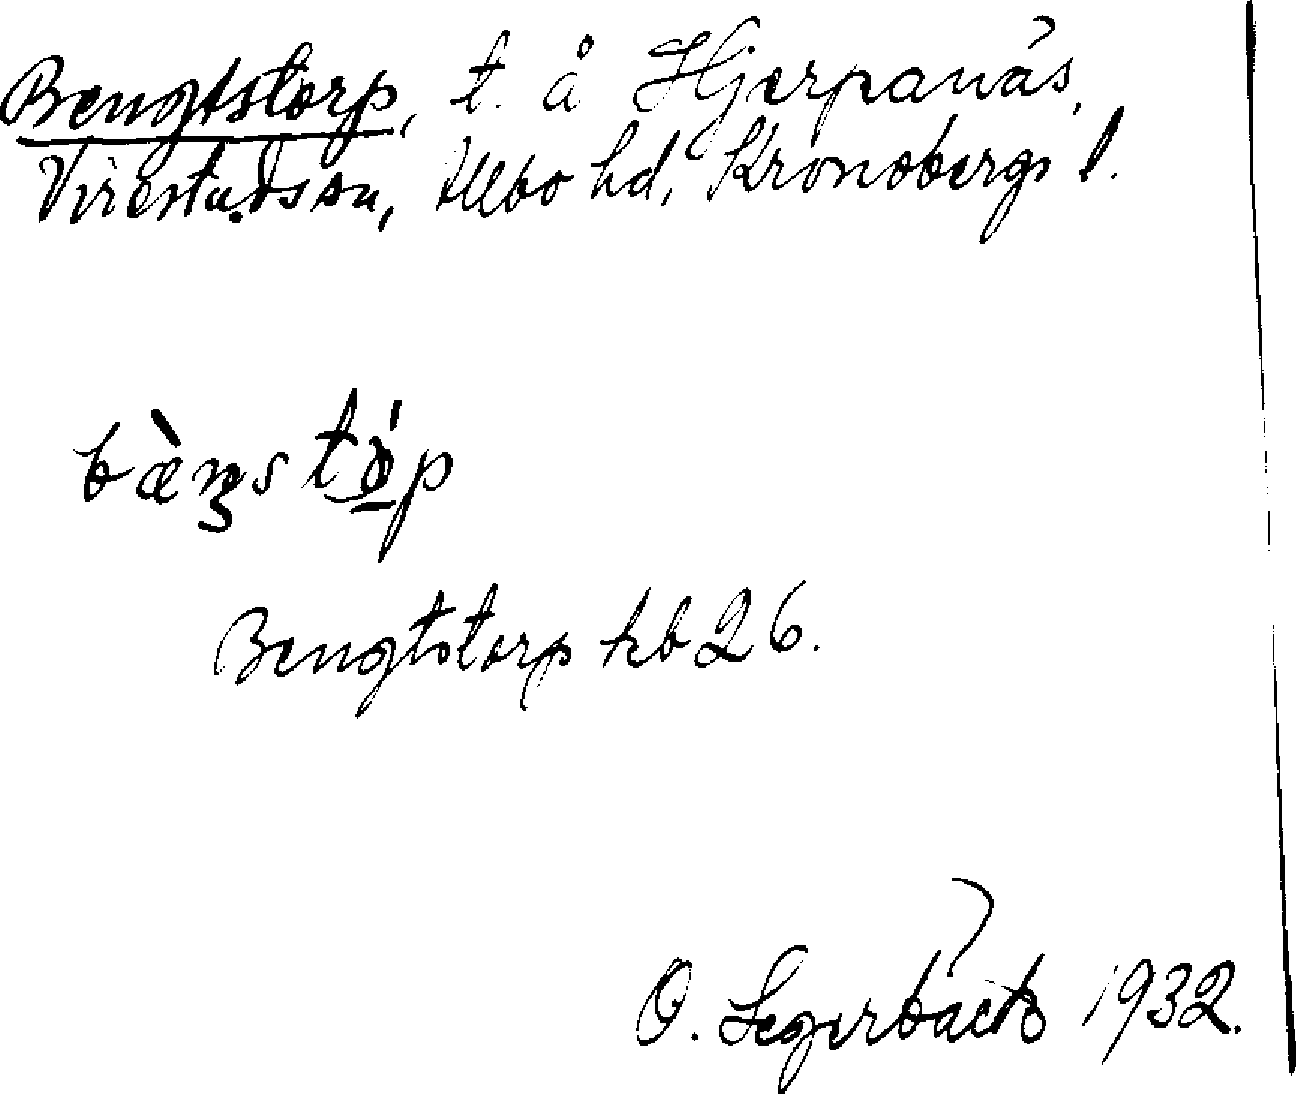 Bengtstorp, t. å Hjerpanäs,
Virestads sn, Allbo hd, Kronobergs l.
bæ̀ŋstɷ́p
Bengtstorp kb 26.
O. Segerbäck 1932.